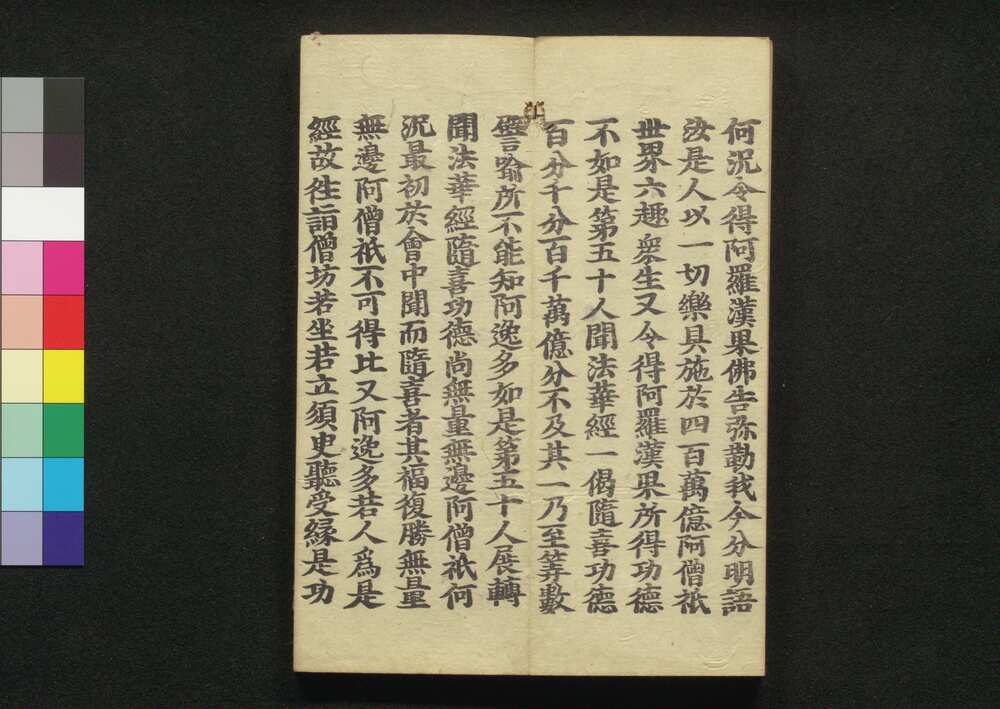 何況令得阿羅漢果佛告弥勒我今分明語
汝是人以一切樂具施於四百萬億阿僧祇
世界六趣衆生又令得阿羅漢果所得功德
不如是第五十人聞法華經一偈隨喜功德
百分千分百千萬億分不及其一乃至筭數
譬喻所不能知阿逸多如是第五十人展轉
聞法華經隨喜功德尚無量無邊阿僧祇何
況最初於會中聞而隨喜者其福復勝無量
無邊阿僧祇不可得比又阿逸多若人為是
經故往詣僧坊若坐若立須臾聽受緣是功